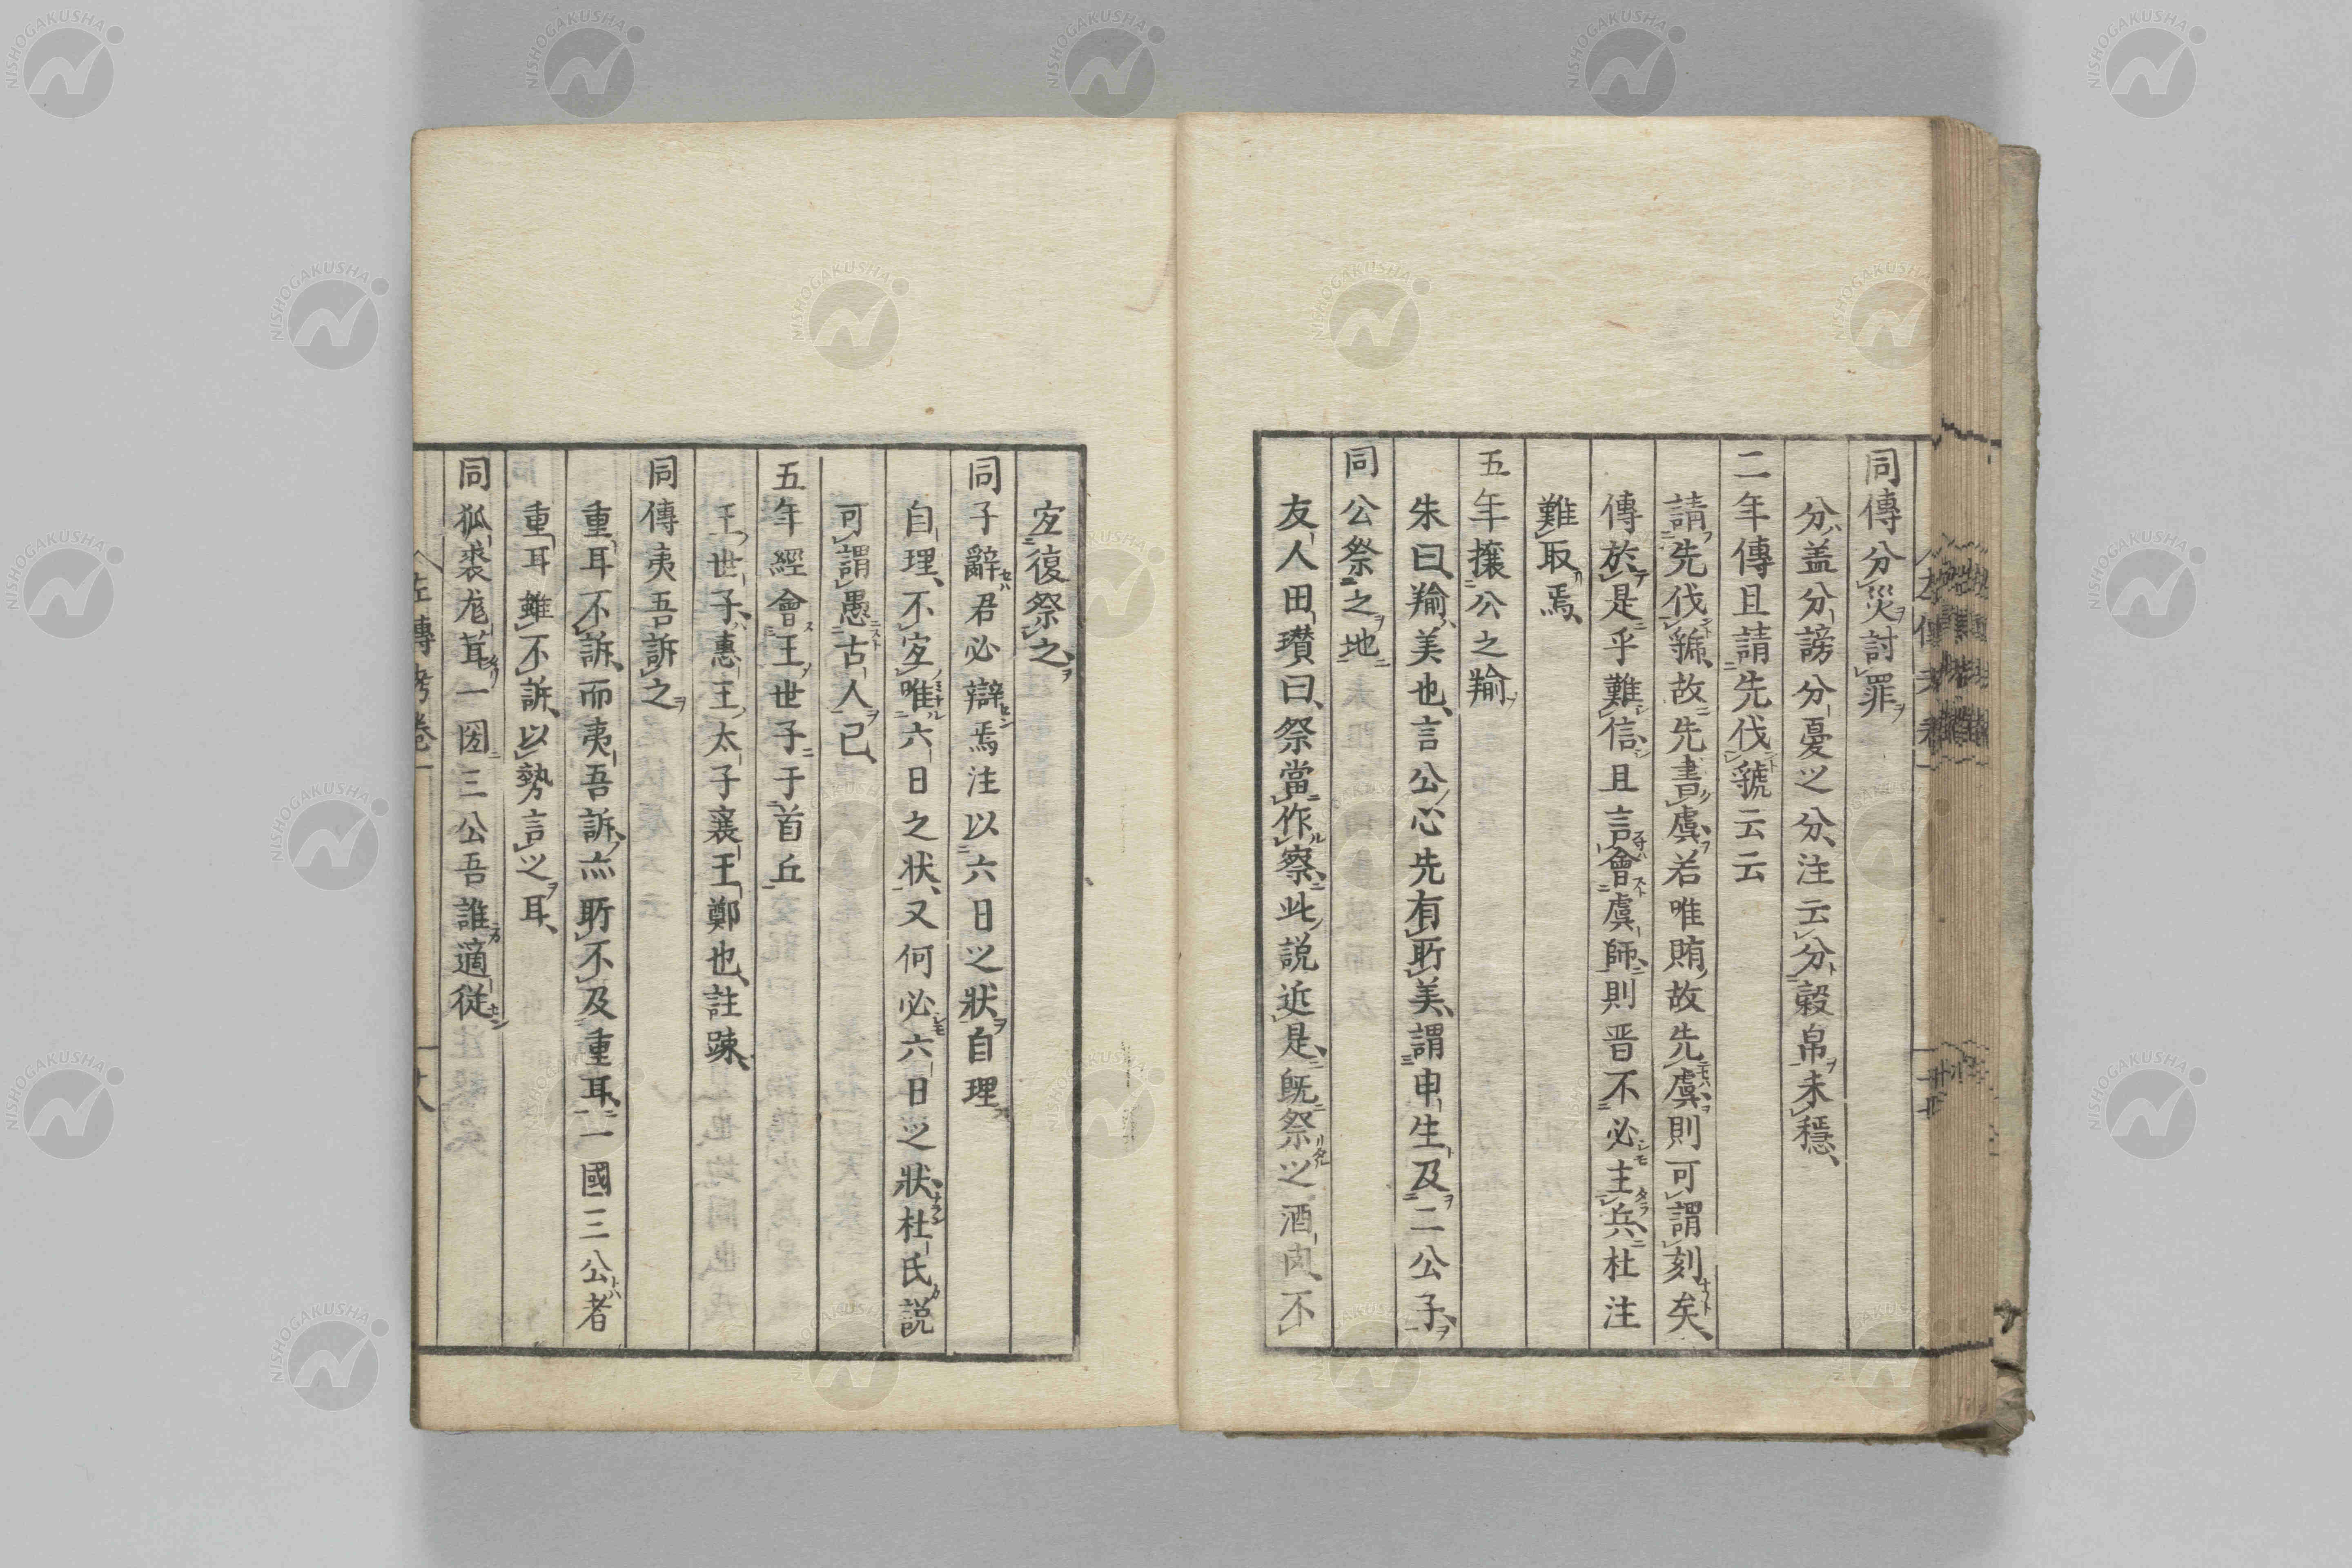 同傳分災討罪
分盖分謗分憂之分注云分穀帛未穩
二年傳且請先伐虢云云
請先伐虢故先書虞若唯賄故先虞則可謂刻矣
傳於是乎難信且言會虞師則晋不必主兵杜注
難取焉
五年攘公之羭
朱曰羭美也言公心先有所美謂申生及二公子
同公祭之地
友人田瓚曰祭當作察此説近是既祭之酒肉不
宜復祭之
同子辭君必辯焉注以六日之狀自理
自理不宜唯六日之状又何必六日之狀杜氏説
可謂愚古人已
五年經會王世子于首丘
王世子惠王太子襄王鄭也註踈
同傳夷吾訴之
重耳不訴而夷吾訴亦所不及重耳一國三公者
重耳雖不訴以勢言之耳
同狐裘尨茸一國三公吾誰適從
左傳考卷一